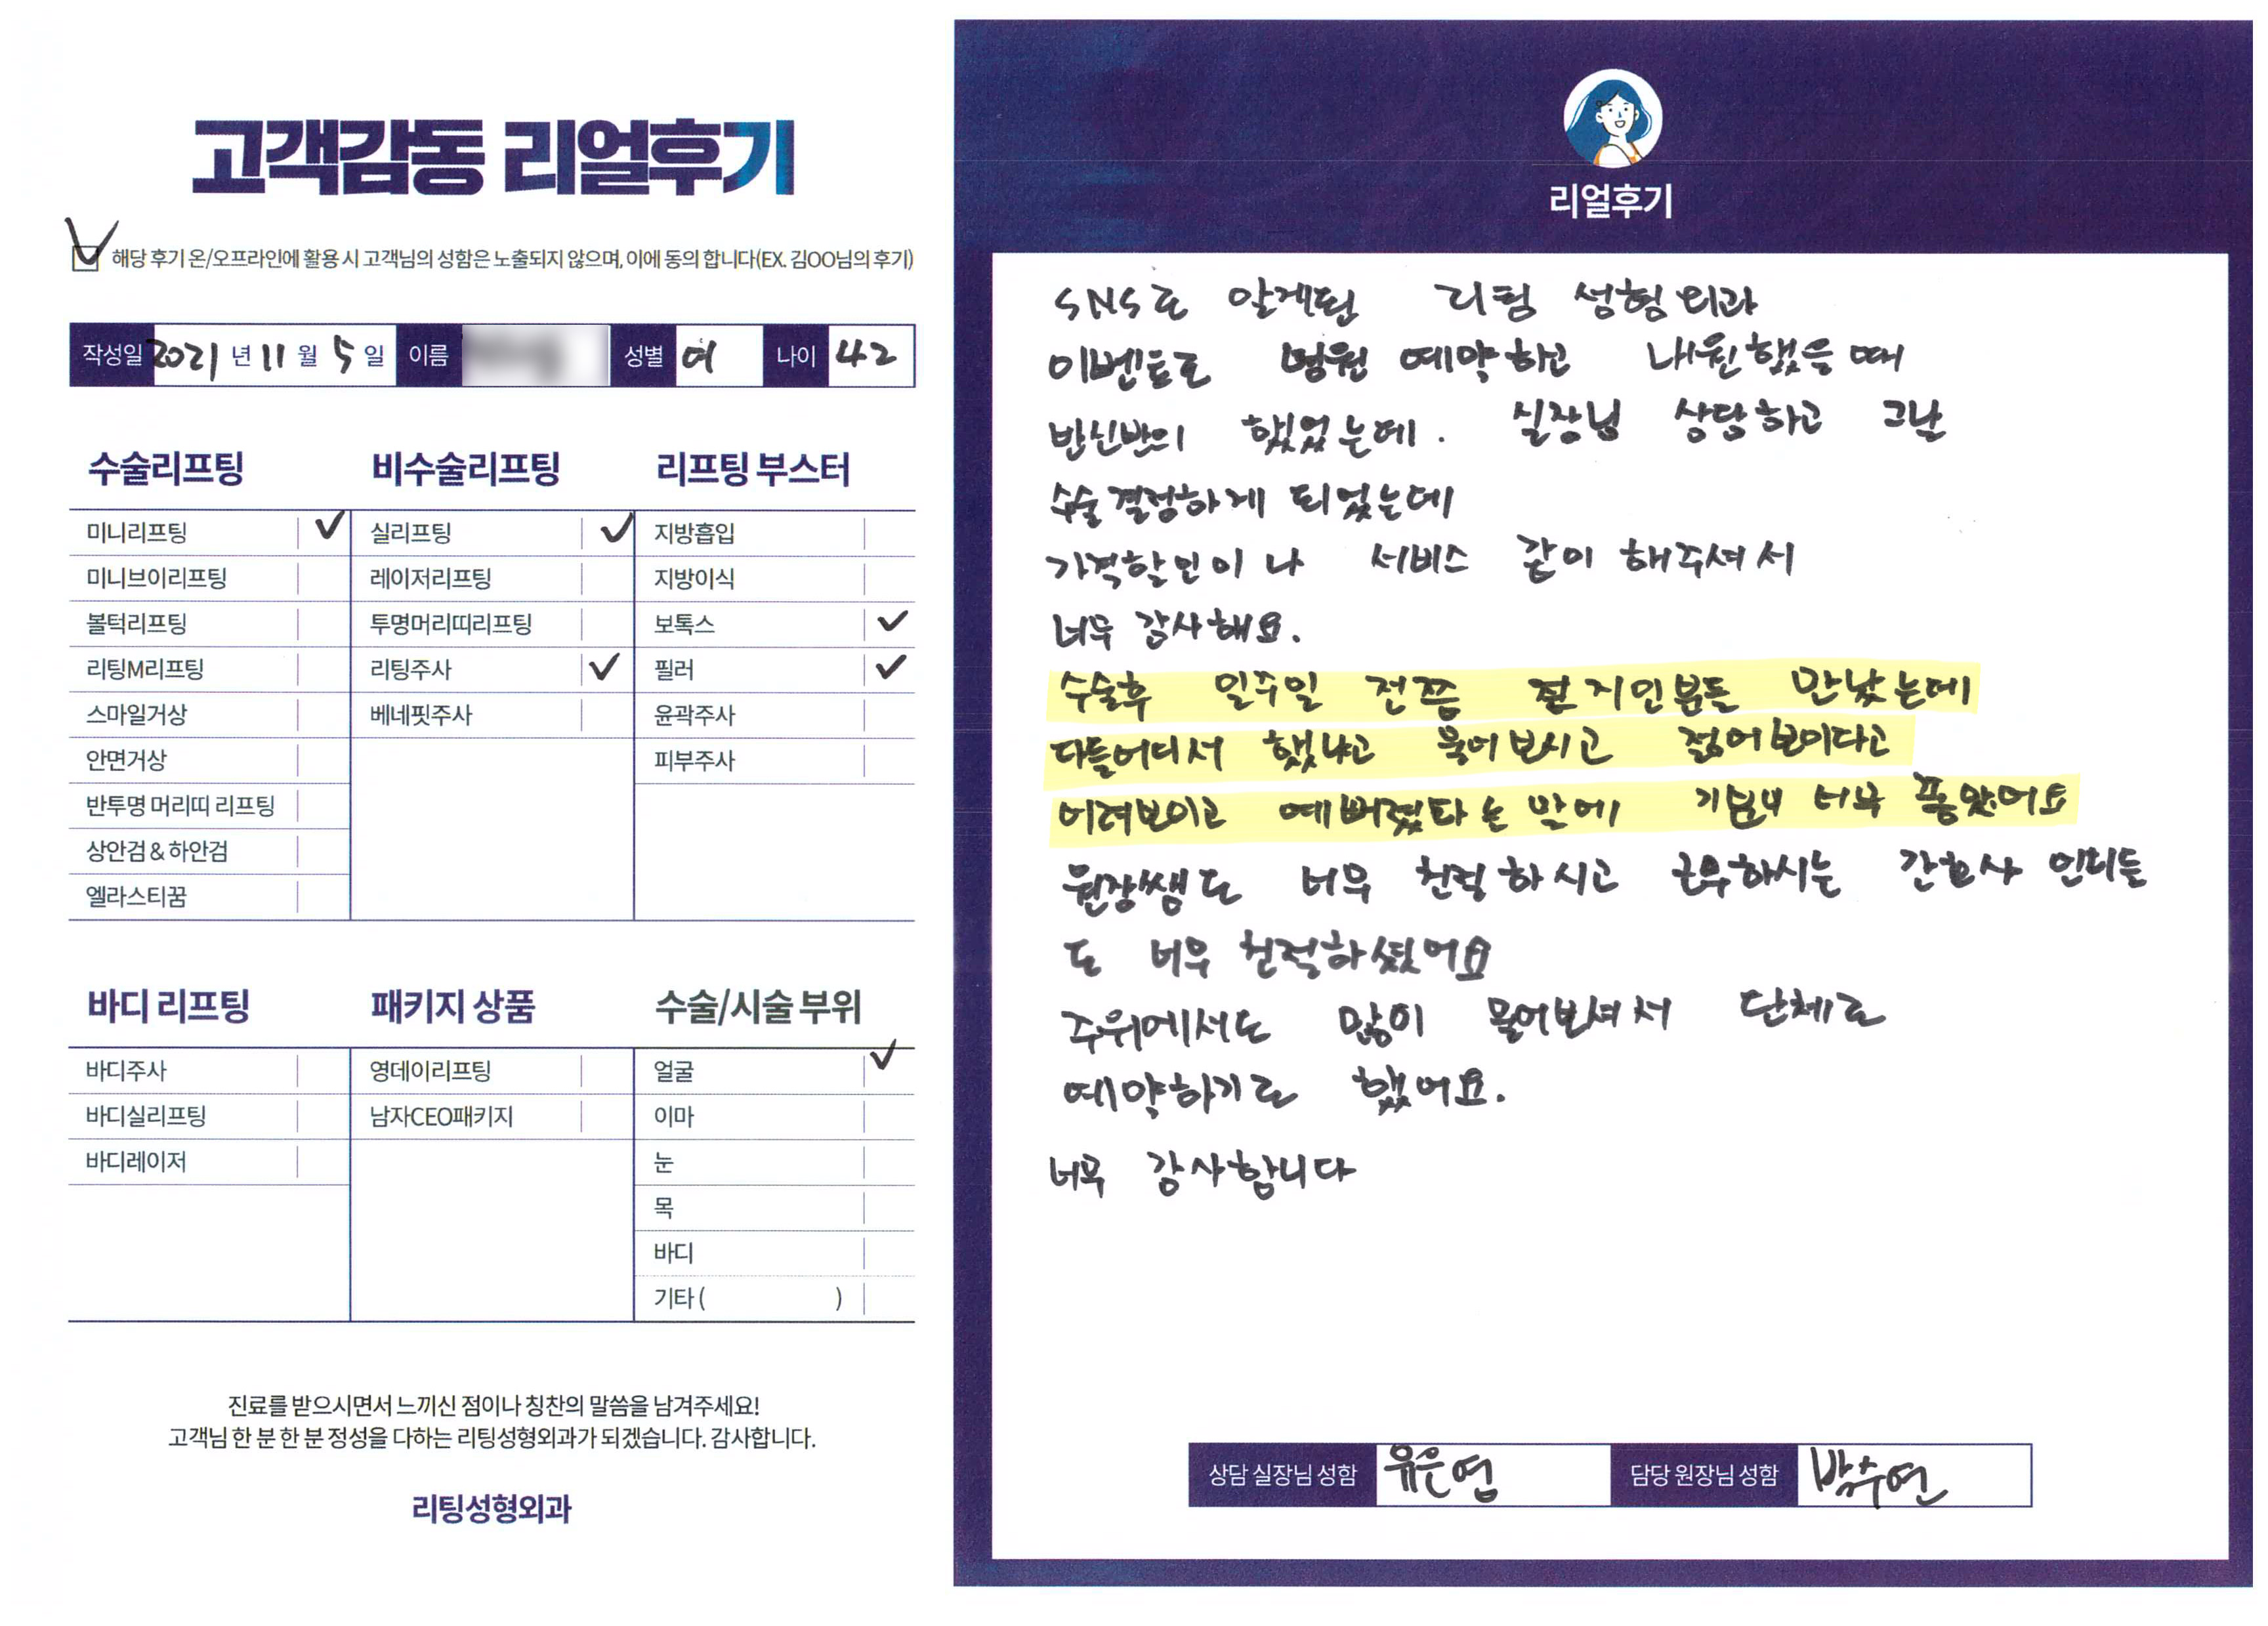 고객감동 리얼후기
해당 후기 온/오프라인에 활용 시 고객님의 성함은 노출되지 않으며, 이에 동의 합니다(EX. 김OO님의 후기)
작성일 2021 년 11 월 5 일 이름 성별 여 나이 42
수술리프팅
미니리프팅
미니브이리프팅
볼턱리프팅
리팅M리프팅
스마일거상
안면거상
반투명 머리띠 리프팅
상안검 & 하안검
엘라스티꿈
비수술리프팅
실리프팅
레이저리프팅
투명머리띠리프팅
리팅주사
베네핏주사
리프팅 부스터
지방흡입
지방이식
보톡스
필러
윤곽주사
피부주사
바디 리프팅
바디주사
바디실리프팅
바디레이저
패키지 상품
영데이리프팅
남자CEO패키지
수술/시술 부위
얼굴
이마
눈
목
바디
기타 ( )
진료를 받으시면서 느끼신 점이나 칭찬의 말씀을 남겨주세요!
고객님 한 분 한 분 정성을 다하는 리팅성형외과가 되겠습니다. 감사합니다.
리팅성형외과
리얼후기
SNS로 알게된 리팅 성형외과
이벤트로 병원 예약하고 내원했을때
반신반의 했었는데. 실장님 상담하고 그날
수술결정하게 되었는데
가격할인이나 서비스 같이 해주셔서
너무 감사해요.
수술후 일주일 전쯤 지인분들 만났는데
다들어디서 했냐고 물어보시고 젊어보이다고
어려보이고 예뻐졌다는 말에 너무 좋았어요
원장쌤도 너무 친절하시고 근무하시는 간호사 언니들
도 너무 친절하셨어요
주위에서도 많이 물어보셔서 단체로
예약하기로 했어요.
너무 감사합니다
상담 실장님 성함 유은엽 담당 원장님 성함 박수연